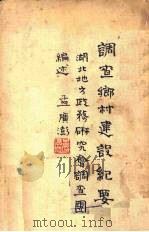 調查鄉村建設紀要
湖北地方政務研究會調查團
編述 孟廣澎
www.duxiu.com